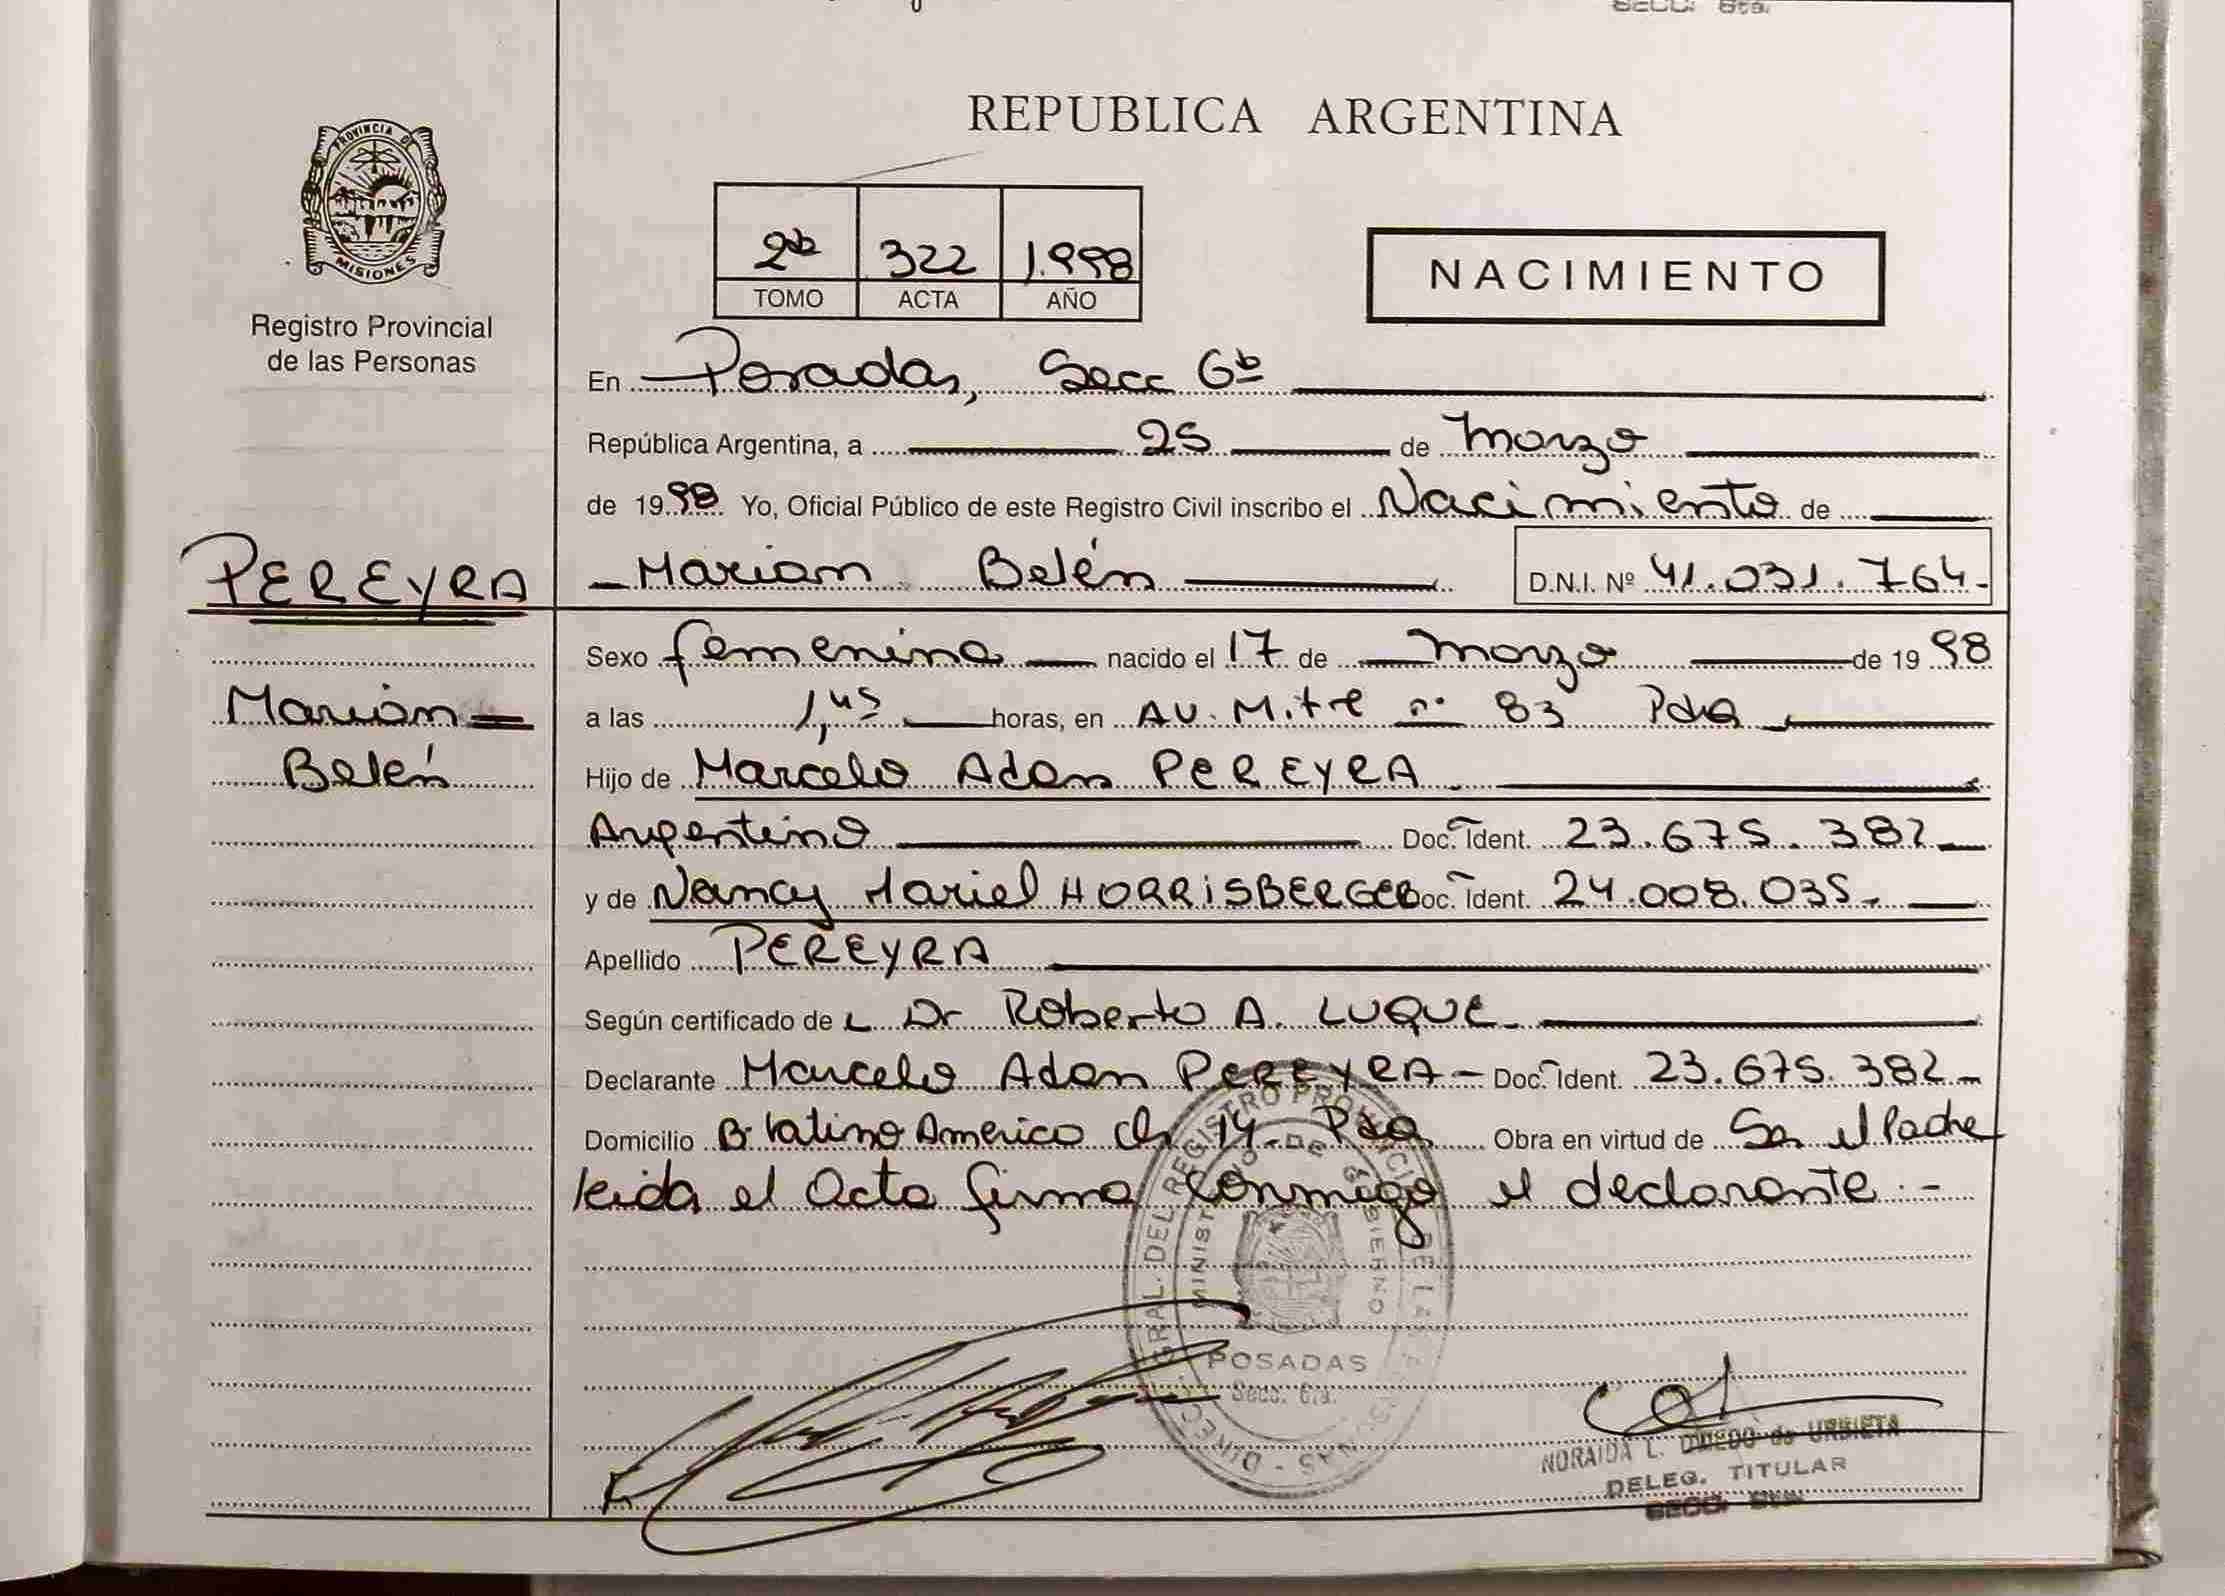 SECC. 6ta.
REPUBLICA ARGENTINA
PROVINCIA DE
MISIONES
Registro Provincial
de las Personas
2b 322 1.998
TOMO ACTA AÑO
NACIMIENTO
En Posadas, Secc 6b
República Argentina, a 25 de Marzo
de 1998 Yo, Oficial Público de este Registro Civil inscribo el Nacimiento de
PEREYRA
Marian Belén D.N.I. Nº 41.031.764-
Sexo femenina nacido el 17 de Marzo de 1998
Marian
Belén
a las 1,45 horas, en AV. Mitre nº 83 Pdas
Hijo de Marcelo Adan PEREYRA
Argentino Doc. Ident. 23.675.382
y de Nancy Mariel HORRISBERGER Doc. Ident. 24.008.035.
Apellido PEREYRA
Según certificado de L Dr Roberto A. LUQUE
Declarante Marcelo Adan PEREYRA - Doc. Ident. 23.675.382
Domicilio Bº Latino America ch 14- Pdas Obra en virtud de Ser el Padre
leida el Acta firma conmigo el declarante.-
DIRECC. GRAL. DEL REGISTRO PROVINCIAL DE LAS PERSONAS
MINISTERIO DE GOBIERNO
POSADAS
Secc. 6ta.
NORAIDA L. OVIEDO de URBIETA
DELEG. TITULAR
SECC. 6ta.